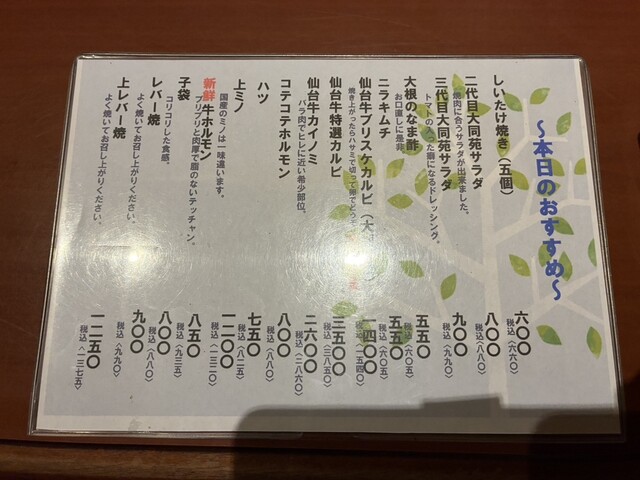 ～本日のおすすめ～
しいたけ焼き（五個） 六〇〇
税込〈六六〇〉
二代目大同苑サラダ 八〇〇
焼肉に合うサラダが出来ました。 税込〈八八〇〉
三代目大同苑サラダ 九〇〇
トマトの入った癖になるドレッシング。 税込〈九九〇〉
大根のなま酢 五五〇
お口直しに是非 税込〈六〇五〉
ニラキムチ 五五〇
税込〈六〇五〉
仙台牛ブリスケカルビ（大 一四〇〇
焼き上がったらハサミで切って卵でどうぞ 税込〈一五四〇〉
仙台牛特選カルビ 三五〇〇
税込〈三八五〇〉
仙台牛カイノミ 二六〇〇
バラ肉でヒレに近い希少部位。 税込〈二八六〇〉
コテコテホルモン 八〇〇
税込〈八八〇〉
ハツ 七五〇
税込〈八二五〉
上ミノ 一二〇〇
国産のミノは一味違います。 税込〈一三二〇〉
新鮮牛ホルモン 八五〇
プリプリと肉厚で脂のないテッチャン。 税込〈九三五〉
子袋 八〇〇
コリコリした食感。 税込〈八八〇〉
レバー焼 九〇〇
よく焼いてお召し上がりください。 税込〈九九〇〉
上レバー焼 一二五〇
よく焼いてお召し上がりください。 税込〈一三七五〉